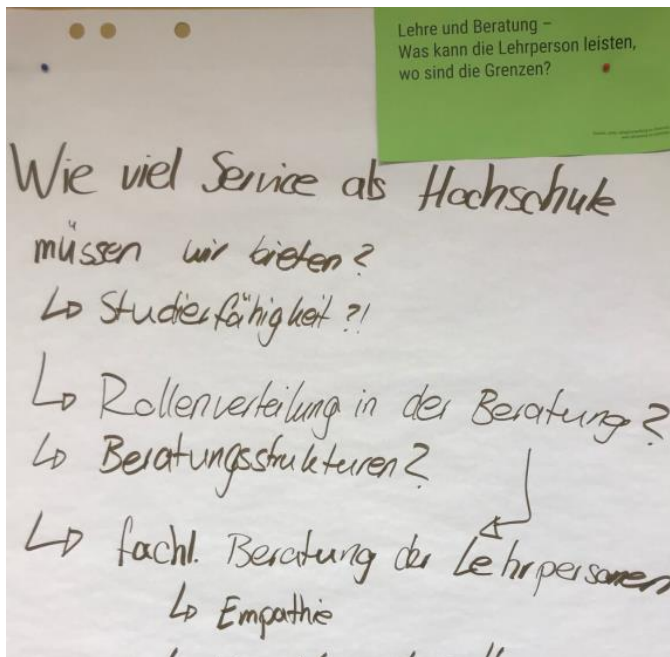 Lehre und Beratung –
Was kann die Lehrperson leisten,
wo sind die Grenzen?
Wie viel Service als Hochschule
müssen wir bieten?
↳ Studierfähigkeit?!
↳ Rollenverteilung in der Beratung?
↳ Beratungsstrukturen?
↳ fachl. Beratung der Lehrpersonen
↳ Empathie